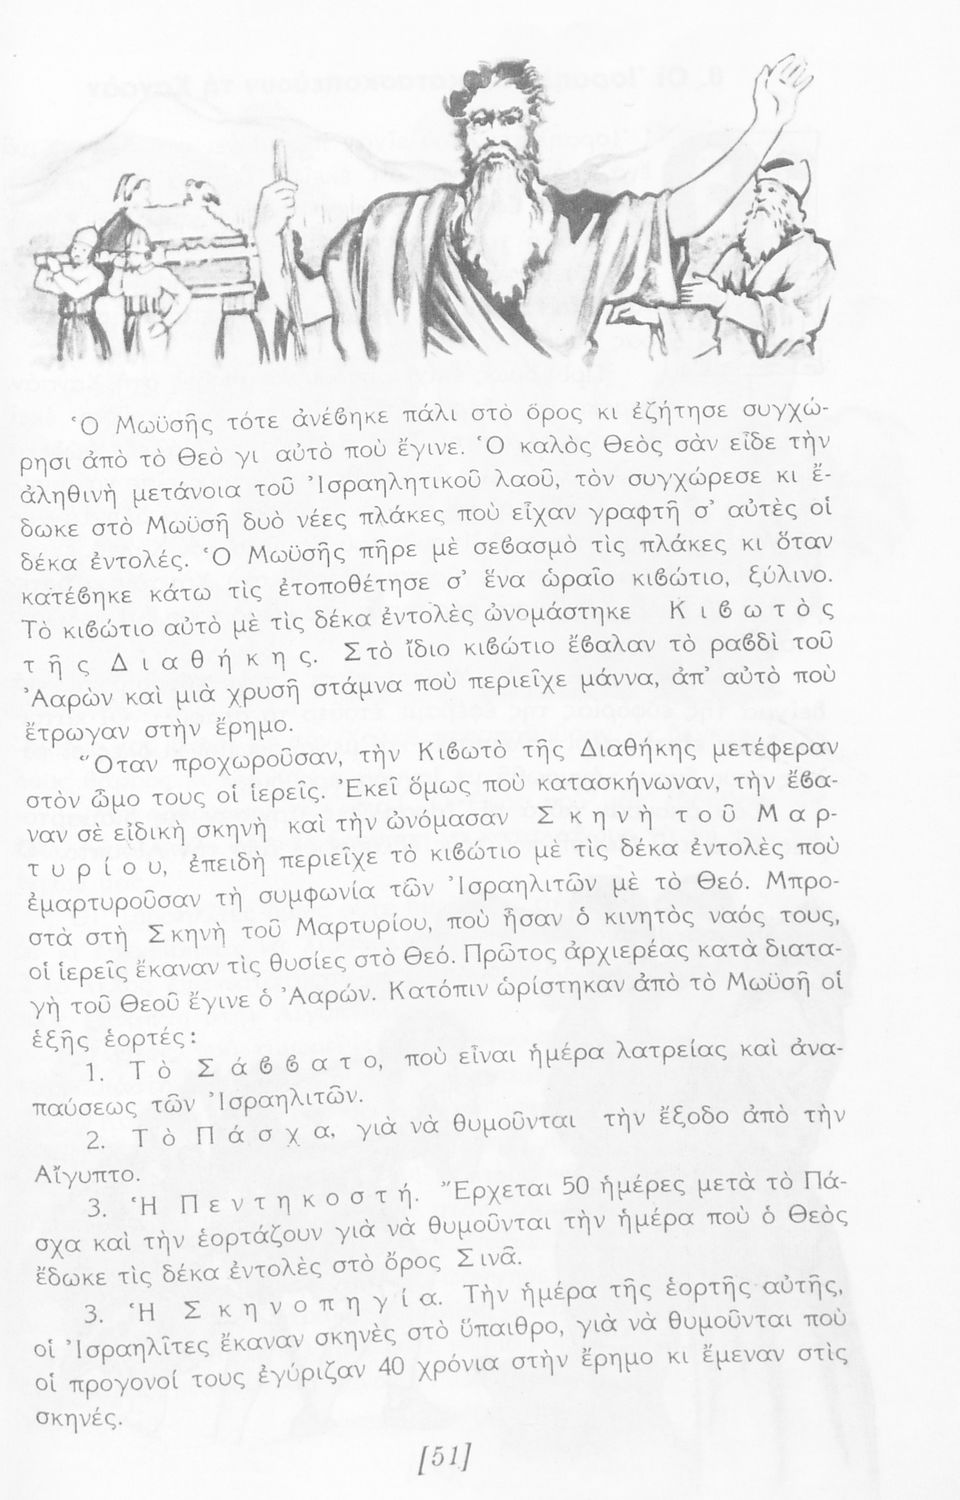 Ὁ Μωϋσῆς τότε ἀνέβηκε πάλι στὸ ὄρος κι ἐζήτησε συγχώ-
ρησι ἀπὸ τὸ Θεὸ γι αὐτὸ ποὺ ἔγινε. Ὁ καλὸς Θεὸς σὰν εἶδε τὴν
ἀληθινὴ μετάνοια τοῦ Ἰσραηλητικοῦ λαοῦ, τὸν συγχώρεσε κι ἔ-
δωκε στὸ Μωϋσῆ δυὸ νέες πλάκες ποὺ εἶχαν γραφτῆ σ’ αὐτὲς οἱ
δέκα ἐντολές. Ὁ Μωϋσῆς πῆρε μὲ σεβασμὸ τὶς πλάκες κι ὅταν
κατέβηκε κάτω τὶς ἐτοποθέτησε σ’ ἕνα ὡραῖο κιβώτιο, ξύλινο.
Τὸ κιβώτιο αὐτὸ μὲ τὶς δέκα ἐντολὲς ὠνομάστηκε Κ ι β ω τ ὸ ς
τ ῆ ς Δ ι α θ ή κ η ς. Στὸ ἴδιο κιβώτιο ἔβαλαν τὸ ραβδὶ τοῦ
Ἀαρὼν καὶ μιὰ χρυσῆ στάμνα ποὺ περιεῖχε μάννα, ἀπ’ αὐτὸ ποὺ
ἔτρωγαν στὴν ἔρημο.
Ὅταν προχωροῦσαν, τὴν Κιβωτὸ τῆς Διαθήκης μετέφεραν
στὸν ὦμο τους οἱ ἱερεῖς. Ἐκεῖ ὅμως ποὺ κατασκήνωναν, τὴν ἔβα-
ναν σὲ εἰδικὴ σκηνὴ καὶ τὴν ὠνόμασαν Σ κ η ν ὴ τ ο ῦ Μ α ρ-
τ υ ρ ί ο υ, ἐπειδὴ περιεῖχε τὸ κιβώτιο μὲ τὶς δέκα ἐντολὲς ποὺ
ἐμαρτυροῦσαν τὴ συμφωνία τῶν Ἰσραηλιτῶν μὲ τὸ Θεό. Μπρο-
στὰ στὴ Σκηνὴ τοῦ Μαρτυρίου, ποὺ ἦσαν ὁ κινητὸς ναός τους,
οἱ ἱερεῖς ἔκαναν τὶς θυσίες στὸ Θεό. Πρῶτος ἀρχιερέας κατὰ διατα-
γὴ τοῦ Θεοῦ ἔγινε ὁ Ἀαρών. Κατόπιν ὡρίστηκαν ἀπὸ τὸ Μωϋσῆ οἱ
ἑξῆς ἑορτές:
1. Τ ὸ Σ ά β β α τ ο, ποὺ εἶναι ἡμέρα λατρείας καὶ ἀνα-
παύσεως τῶν Ἰσραηλιτῶν.
2. Τ ὸ Π ά σ χ α, γιὰ νὰ θυμοῦνται τὴν ἔξοδο ἀπὸ τὴν
Αἴγυπτο.
3. Ἡ Π ε ν τ η κ ο σ τ ή. Ἔρχεται 50 ἡμέρες μετὰ τὸ Πά-
σχα καὶ τὴν ἑορτάζουν γιὰ νὰ θυμοῦνται τὴν ἡμέρα ποὺ ὁ Θεὸς
ἔδωκε τὶς δέκα ἐντολὲς στὸ ὄρος Σινᾶ.
3. Ἡ Σ κ η ν ο π η γ ί α. Τὴν ἡμέρα τῆς ἑορτῆς αὐτῆς,
οἱ Ἰσραηλῖτες ἔκαναν σκηνὲς στὸ ὕπαιθρο, γιὰ νὰ θυμοῦνται ποὺ
οἱ προγονοί τους ἐγύριζαν 40 χρόνια στὴν ἔρημο κι ἔμεναν στὶς
σκηνές.
[51]